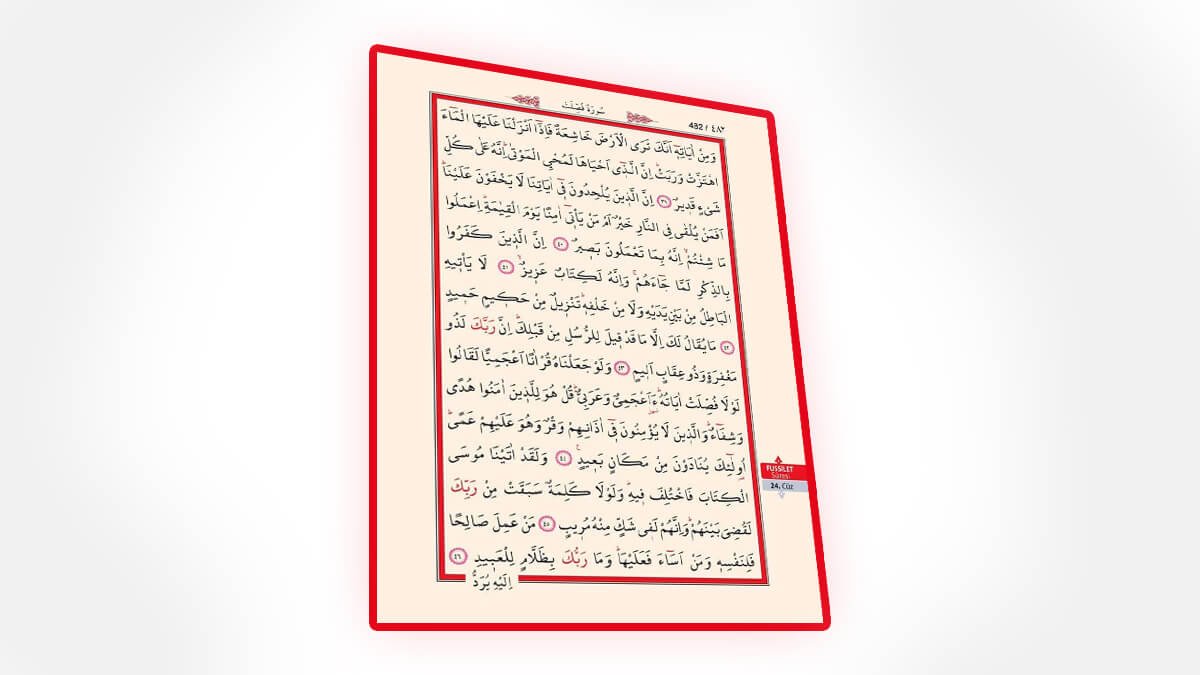 سُورَةُ فُصِّلَتْ
482 / ٤٨٢
وَمِنْ اٰيَاتِه۪ٓ اَنَّكَ تَرَى الْاَرْضَ خَاشِعَةً فَاِذَٓا اَنْزَلْنَا عَلَيْهَا الْمَٓاءَ
اهْتَزَّتْ وَرَبَتْۜ اِنَّ الَّذ۪ٓي اَحْيَاهَا لَمُحْيِ الْمَوْتٰىۜ اِنَّهُ عَلٰى كُلِّ
شَيْءٍ قَد۪يرٌ ٣٩ اِنَّ الَّذ۪ينَ يُلْحِدُونَ ف۪ٓي اٰيَاتِنَا لَا يَخْفَوْنَ عَلَيْنَاۜ
اَفَمَنْ يُلْقٰى فِي النَّارِ خَيْرٌ اَمْ مَنْ يَأْت۪ٓي اٰمِنًا يَوْمَ الْقِيٰمَةِۜ اِعْمَلُوا
مَا شِئْتُمْۙ اِنَّهُ بِمَا تَعْمَلُونَ بَص۪يرٌ ٤٠ اِنَّ الَّذ۪ينَ كَفَرُوا
بِالذِّكْرِ لَمَّا جَٓاءَهُمْۚ وَاِنَّهُ لَكِتَابٌ عَز۪يزٌۙ ٤١ لَا يَأْت۪يهِ
الْبَاطِلُ مِنْ بَيْنِ يَدَيْهِ وَلَا مِنْ خَلْفِه۪ۜ تَنْز۪يلٌ مِنْ حَك۪يمٍ حَم۪يدٍ
٤٢ مَا يُقَالُ لَكَ اِلَّا مَا قَدْ ق۪يلَ لِلرُّسُلِ مِنْ قَبْلِكَۜ اِنَّ رَبَّكَ لَذُو
مَغْفِرَةٍ وَذُو عِقَابٍ اَل۪يمٍ ٤٣ وَلَوْ جَعَلْنَاهُ قُرْاٰنًا اَعْجَمِيًّا لَقَالُوا
لَوْلَا فُصِّلَتْ اٰيَاتُهُۜ ءَاَعْجَمِيٌّ وَعَرَبِيٌّۜ قُلْ هُوَ لِلَّذ۪ينَ اٰمَنُوا هُدًى
وَشِفَٓاءٌۜ وَالَّذ۪ينَ لَا يُؤْمِنُونَ ف۪ٓي اٰذَانِهِمْ وَقْرٌ وَهُوَ عَلَيْهِمْ عَمًىۜ
اُو۬لٰٓئِكَ يُنَادَوْنَ مِنْ مَكَانٍ بَع۪يدٍ۟ ٤٤ وَلَقَدْ اٰتَيْنَا مُوسَى
الْكِتَابَ فَاخْتُلِفَ ف۪يهِۜ وَلَوْلَا كَلِمَةٌ سَبَقَتْ مِنْ رَبِّكَ
لَقُضِيَ بَيْنَهُمْۜ وَاِنَّهُمْ لَف۪ي شَكٍّ مِنْهُ مُر۪يبٍ ٤٥ مَنْ عَمِلَ صَالِحًا
فَلِنَفْسِه۪ وَمَنْ اَسَٓاءَ فَعَلَيْهَاۜ وَمَا رَبُّكَ بِظَلَّامٍ لِلْعَب۪يدِ ٤٦
اِلَيْهِ يُرَدُّ
FUSSİLET
Sûresi
24. Cüz